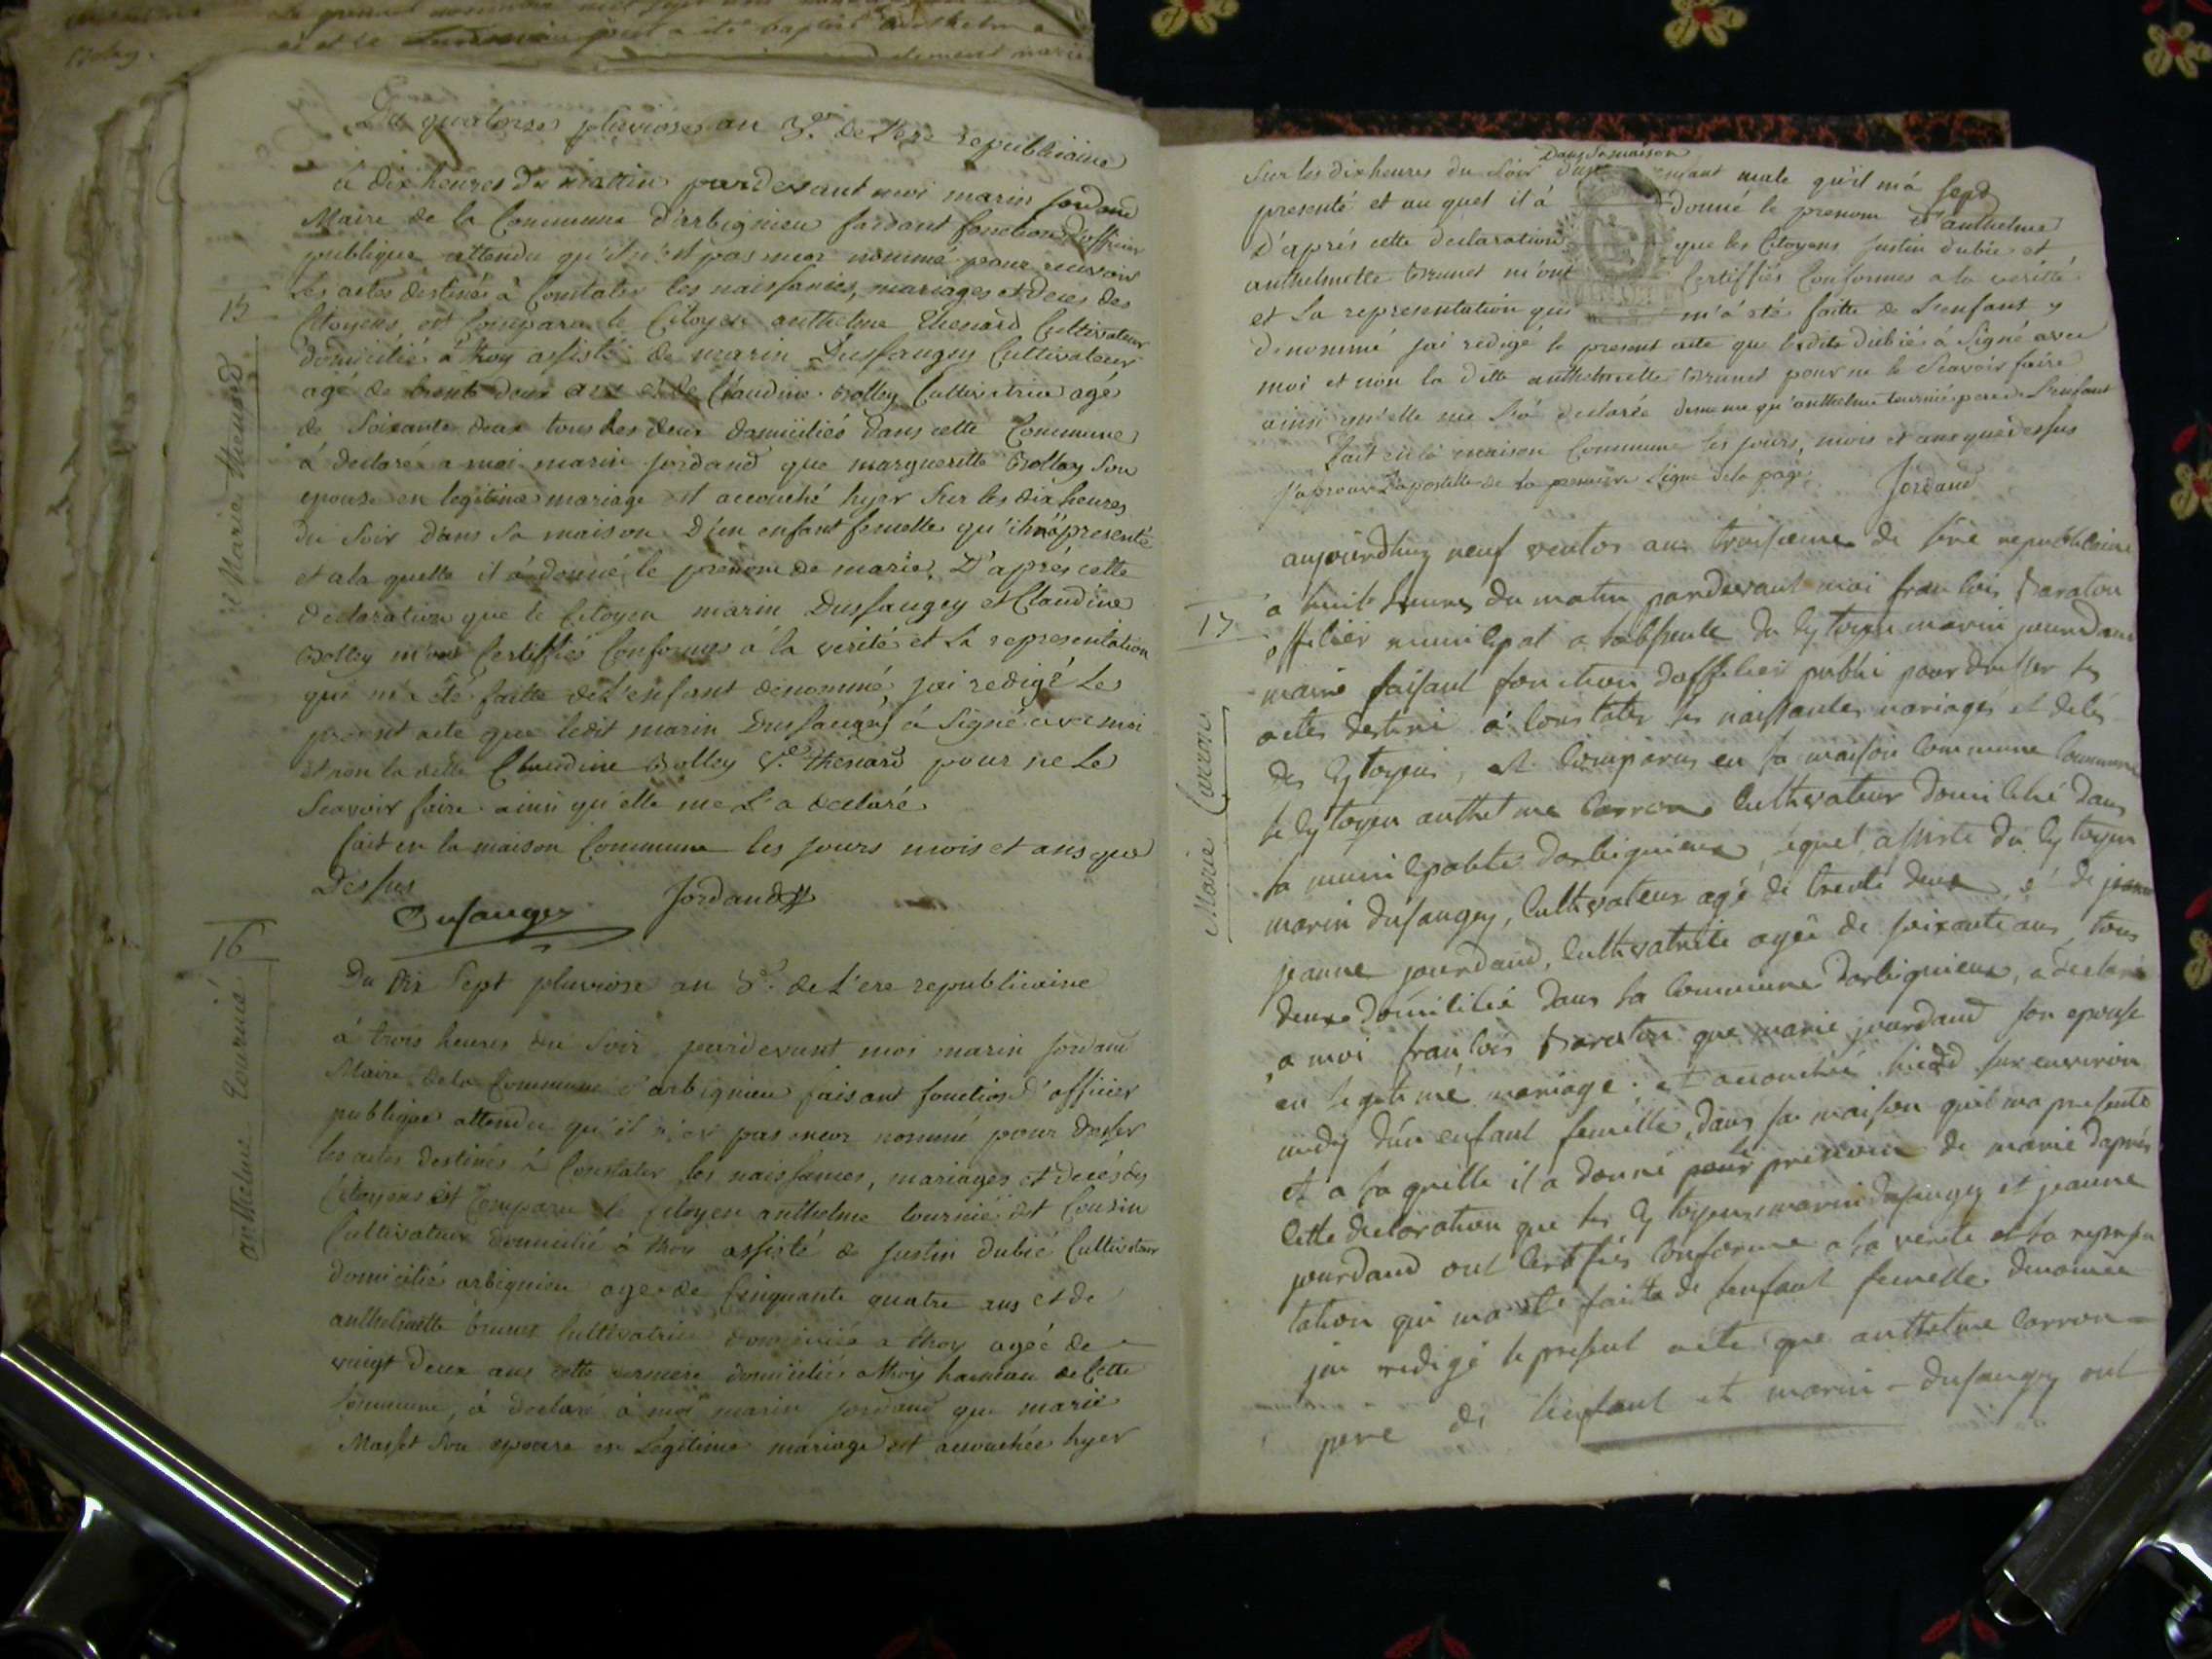 Du quatorze pluviose an 3e. de l'ere republicaine
à dix heures du mattin pardevant moi marin Jordand
Maire de la Commune d'arbignieu faidant fonction d'officier
publique attendu qu'il n'est pas encor nommé pour recevoir
les actes destinés à Constater les naissances, mariages et deces des
15
Citoyens est Comparu le Citoyen anthelme thenard Cultivateur
Marie thenard
domicilié à thoy assisté de marin Dussaugey Cultivateur
agé de trente deux ans et de Claudine Bolley Cultivatrice agé
de Soixante deux tous les deux domiciliés dans cette Commune
à declaré a moi marin Jordand que marguerite Bolley Son
epouse en legitime mariage est accouché hyer Sur les dix heures
du Soir dans Sa maison D'un enfant femelle qu'il m'a presenté
et a la quelle il à donné le prenom de marie, D'aprés cette
declaration que le Citoyen marin Dussaugey et Claudine
Bolley m'ont Certiffiés Conformes à la verité et La representation
qui m'a été faitte de L'enfant denommé, jai redigé Le
present acte que ledit marin Dussaugey à Signé avec moi
et non la ditte Claudine Bolley Ve. thenard pour ne Le
Scavoir faire ainsi qu'elle me L'a declaré
fait en la maison Commune les jours mois et ans que
Dessus
Dusaugey Jordand
16
anthelme tournié
Du Dix Sept pluviose an 3e. de L'ere republicaine
à trois heures du Soir pardevant moi marin Jordand
Maire de la Commune d'arbignieu faisant fonction d'officier
publique attendu qu'il n'est pas encor nommé pour dresser
les actes destinés à Constater les naissances, mariages et décés des
Citoyens est Comparu le Citoyen anthelme tournié dit Cousin
Cultivateur domicilié à thoy assisté de Justin dubié Cultivateur
domicilié arbignieu age de Cinquante quatre ans et de
anthelmette brunet Cultivatrice domiciliée a thoy agée de
vingt deux ans cette derniere domiciliée athoy hameau de Cette
Commune, à declaré à moi marin Jordand que marie
Masset Son epouse en Légitime mariage est accouchée hyer
Dans Sa maison
Sur les dix heures du Soir d'un enfant male qu'il m'à
presenté et au quel il à donné le prenom d'anthelme
D'aprés cette declaration que les Citoyens Justin dubié et
anthelmette Brunet m'ont Certiffiés Conformes a la verité
et La representation qui m'à été faitte de L'enfant y
dénommé jai redigé le present acte que ledit dubié à Signé avec
moi et non la ditte anthelmette Brunet pour ne le Scavoir faire
ainsi qu'elle me L'à declarée de meme qu'anthelme tournié pere de L'enfant
fait en la maison Commune les jours, mois et ans que dessus
J'aprouve L'apostille de la premiere Ligne de la page Jordand
aujourdhuy neuf ventos ans troisieme de lére republicaine
à huit heures du matin pardevant moi francois Baraton
17
officier municipal a labssence du Cytoyen marin jourdand
maire faisant fonction dofficier public pour dresser les
actes destiné à Constater les naissances mariages et décés
Marie Carron
des Cytoyens, est Comparus en la maison Commune
le Cytoyen anthelme Carron Cultivateur domicilié dans
la municipalité darbignieux, lequel assisté du Cytoyen
marin dusaugey, Cultivateur agé de trente deux, et de
jeanne jourdand, Cultivatrice agée de soixante ans, tous
deux domicilié dans la Commune darbignieux, a declaré
a moi francois Baraton que marie jourdand son epouse
en legitimé mariage, est accouchée hierd sur environ
midy dún enfant femelle, dans sa maison quil ma presenté
et a la quelle il a donné pour le prenom de marie daprés
Cette declaration que les Cytoyens marin dusaugey et jeanne
jourdand ont Certifiés Conforme a la verité et la represen
tation qui ma eté faitte de lenfant femelle denomée
jai redigé le present acte que anthelme Carron
pere de lienfant et marin dusaugey ont